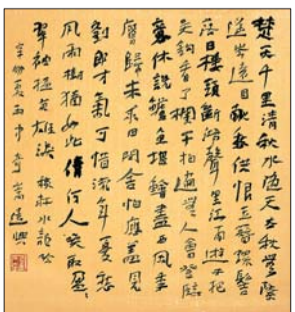 楚天千里清秋水随天去秋無際
遥岑遠目献愁供恨玉簪螺髻
落日楼頭断鴻聲里江南游子把
吴鈎看了欄干拍遍無人會登臨
意休説鱸魚堪鱠盡西風季
鷹歸未求田問舍怕應羞見
劉郎才氣可惜流年憂愁
風雨樹猶如此倩何人唤取盈、
翠袖揾英雄淚 稼軒水龍吟
夏雨中